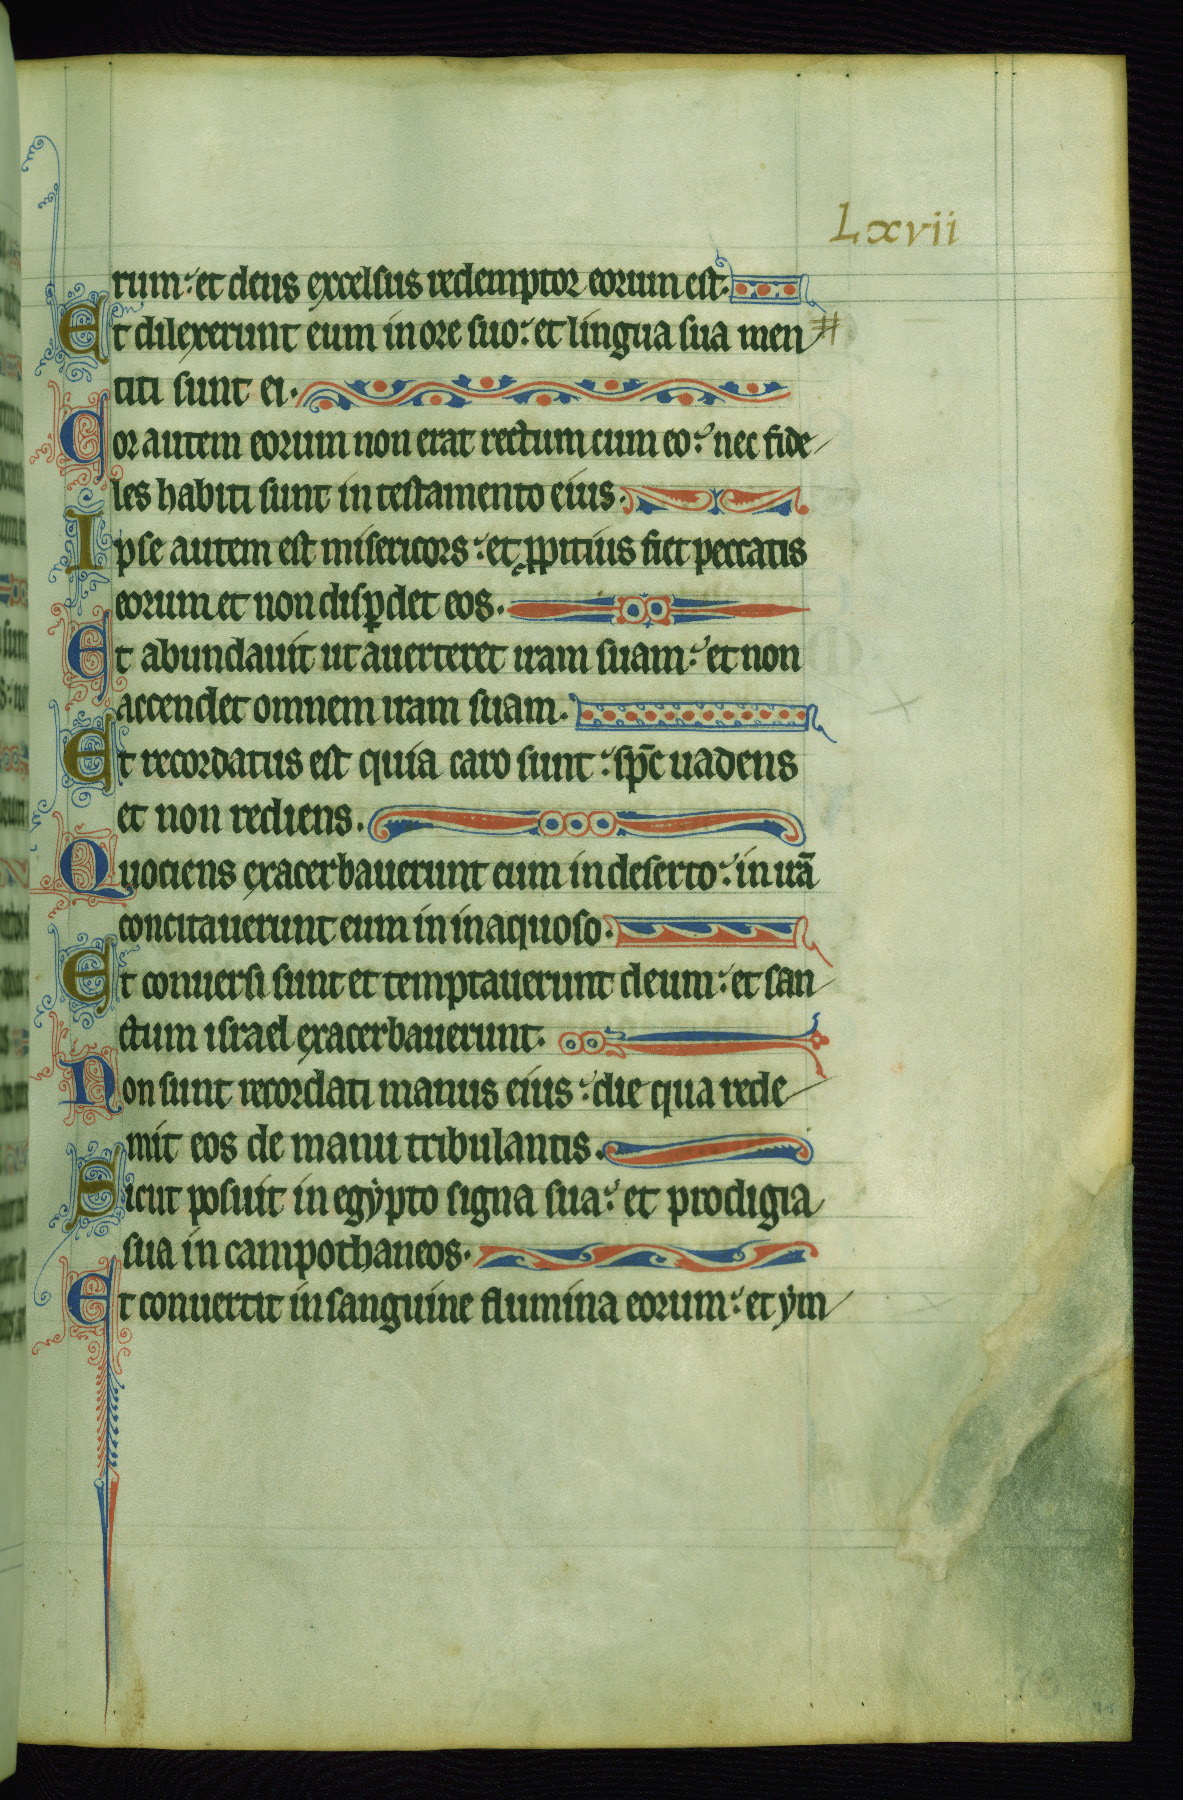 Lxvii
rum: et deus excelsus redemptor eorum est.
Et dilexerunt eum in ore suo: et lingua sua men
titi sunt ei.
Cor autem eorum non erat rectum cum eo: nec fide
les habiti sunt in testamento eius.
Ipse autem est misericors: et ꝓpitius fiet peccatis
eorum et non disꝑdet eos.
Et abundauit ut auerteret iram suam: et non
accendet omnem iram suam.
Et recordatus est quia caro sunt: sp̄c uadens
et non rediens.
Quociens exacerbauerunt eum in deserto: in irā
concitauerunt eum in inaquoso.
Et conuersi sunt et temptauerunt deum: et san
ctum israel exacerbauerunt.
Non sunt recordati manus eius: die qua rede
mit eos de manu tribulantis.
Sicut posuit in egẏpto signa sua: et prodigia
sua in campo thaneos.
Et conuertit in sanguine flumina eorum: et ẏm